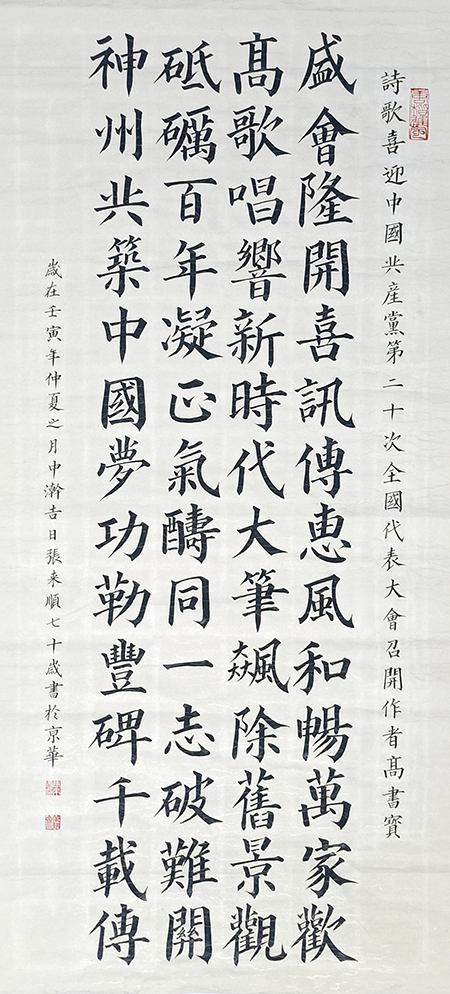 詩歌喜迎中國共産黨第二十次全國代表大會召開作者髙書寳
盛會隆開喜訊傳惠風和暢萬家歡
髙歌唱響新時代大筆飆除舊景觀
砥礪百年凝正氣醻同一志破難關
神州共築中國夢功勒豐碑千載傳
嵗在壬寅年仲夏之月中澣吉日張来順七十嵗書於京華